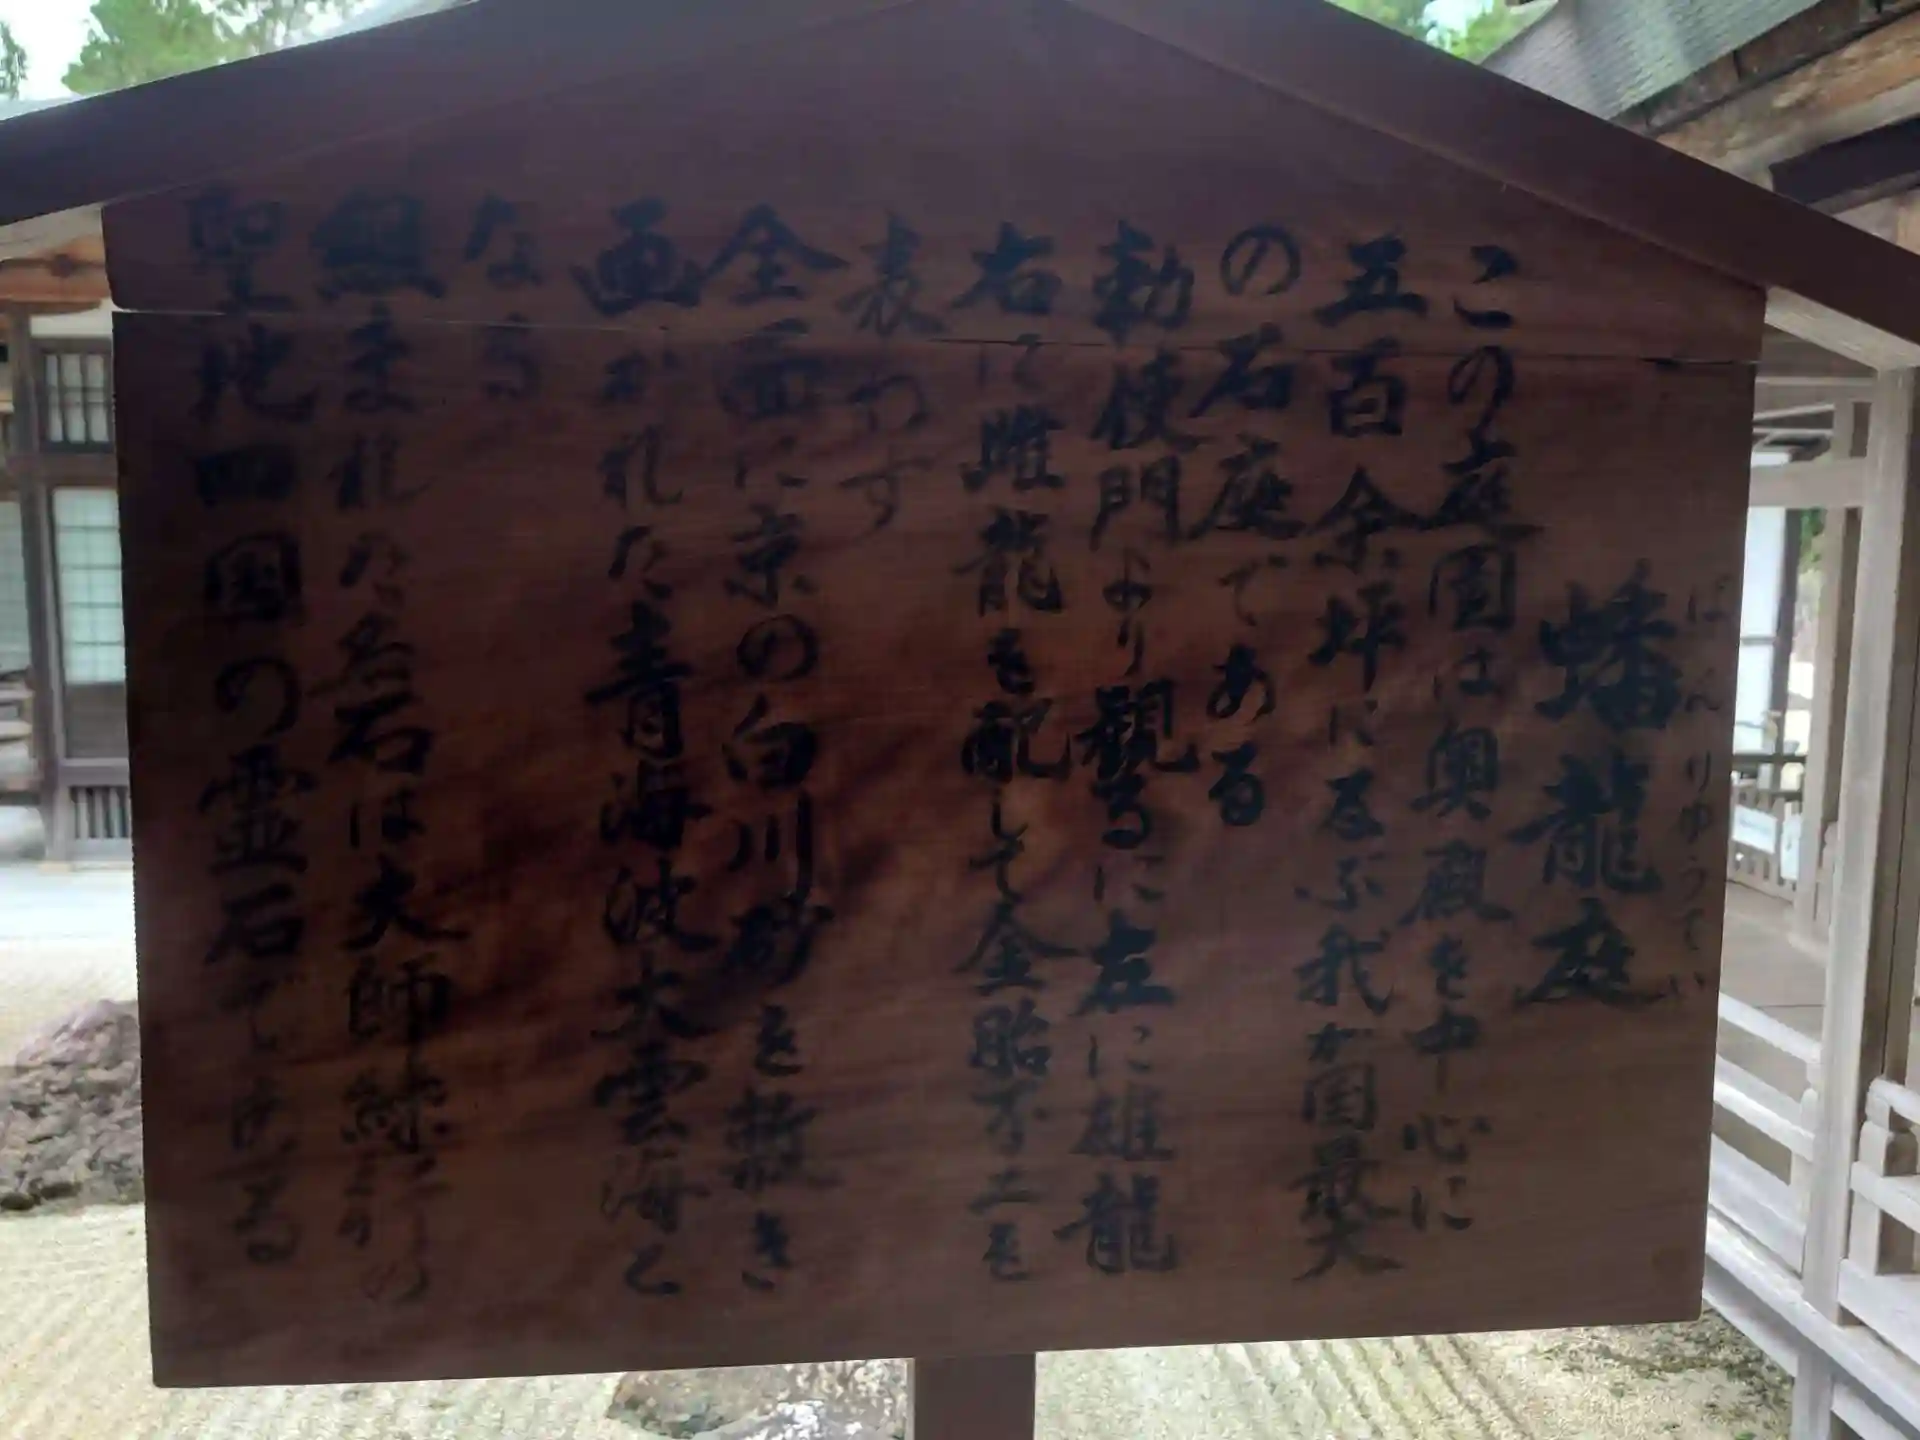 ばんりゅうてい
蟠龍庭
この庭園は奥殿を中心に
五百余坪に及ぶ我が国最大
の石庭である
勅使門より観るに左に雄龍
右に雌龍を配して金胎不二を
表わす
全面に京の白川砂を撒き
画かれた青海波大雲海と
なる
組まれた名石は大師縁の
聖地四国の霊石である